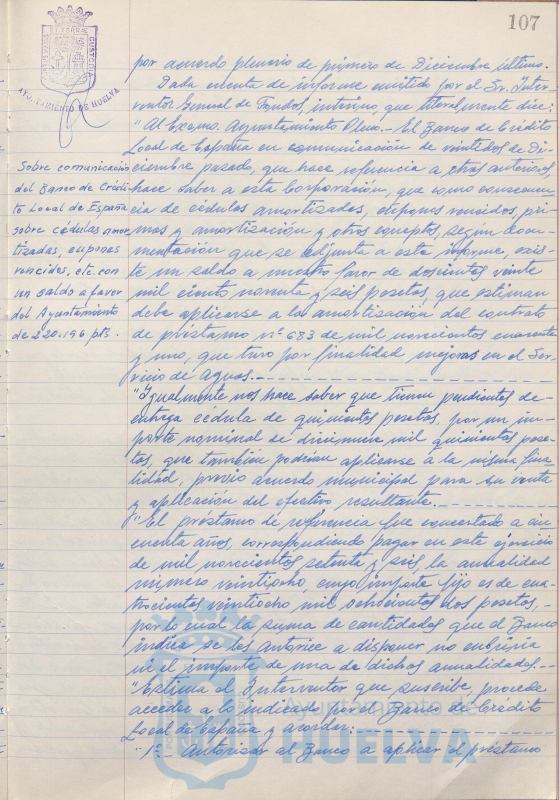 107
AYUNTAMIENTO DE HUELVA
por acuerdo plenario de primero de Diciembre último.
Dada cuenta de informe emitido por el Sr. Inter-
ventor General de Fondos, interino, que literalmente dice:
"Al Excmo. Ayuntamiento Pleno.- El Banco de Crédito
Local de España en comunicación de veintidos de Di-
ciembre pasado, que hace referencia a otras anteriores
hace saber a esta Corporación, que como consecuen
cia de cédulas amortizadas, cupones vencidos, pri-
mas y amortización y otros conceptos, según docu-
mentación que se adjunta a este informe, exis
te un saldo a nuestro favor de doscientos veinte
mil ciento noventa y seis pesetas, que estiman
debe aplicarse a la amortización del contrato
de préstamo nº 683 de mil novecientos cuarenta
y uno, que tuvo por finalidad mejoras en el Ser-
vicio de Aguas.-
Sobre comunicación
del Banco de Crédi-
to Local de España
sobre cédulas amor
tizadas, cupones
vencidos, etc. con
un saldo a favor
del Ayuntamiento
de 220.196 pts.
"Igualmente nos hace saber que tienen pendientes de-
entrega cédula de quinientas pesetas, por un im-
porte nominal de diecinueve mil quinientas pese-
tas, que también podrían aplicarse a la misma fina
lidad, previo acuerdo municipal para su venta
y aplicación del efectivo resultante.-
"El préstamo de referencia fue concertado a cin
cuenta años, correspondiendo pagar en este ejercicio
de mil novecientos setenta y seis la anualidad
número veintiocho, cuyo importe fijo es de cua-
trocientas veintiocho mil ochocientas dos pesetas,-
por lo cual la suma de cantidades que el Banco
indica se les autorice a disponer no cubriría
ni el importe de una de dichas anualidades.-
"Estima el Interventor que suscribe, procede
acceder a lo indicado por el Banco de Crédito
Local de España y acordar:
"1º.- Autorizar al Banco a aplicar el préstamo
Ayuntamiento de
HUELVA